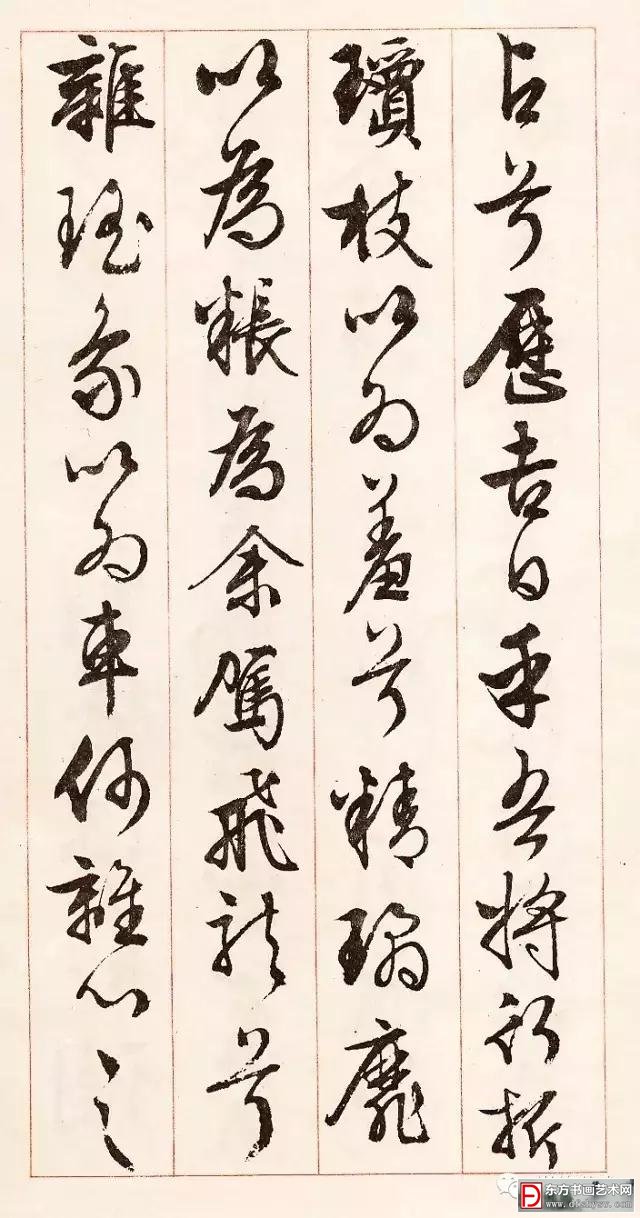 占兮歷吉日乎吾將行折
瓊枝以為羞兮精瓊靡
以為粻為余駕飛龍兮
雜瑤象以為車何離心之
东方书画艺术网